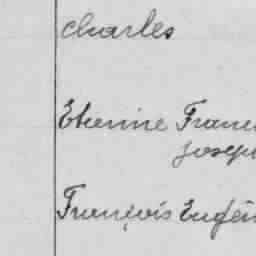 Charles
Etienne Franc
Josep
François Eugèn